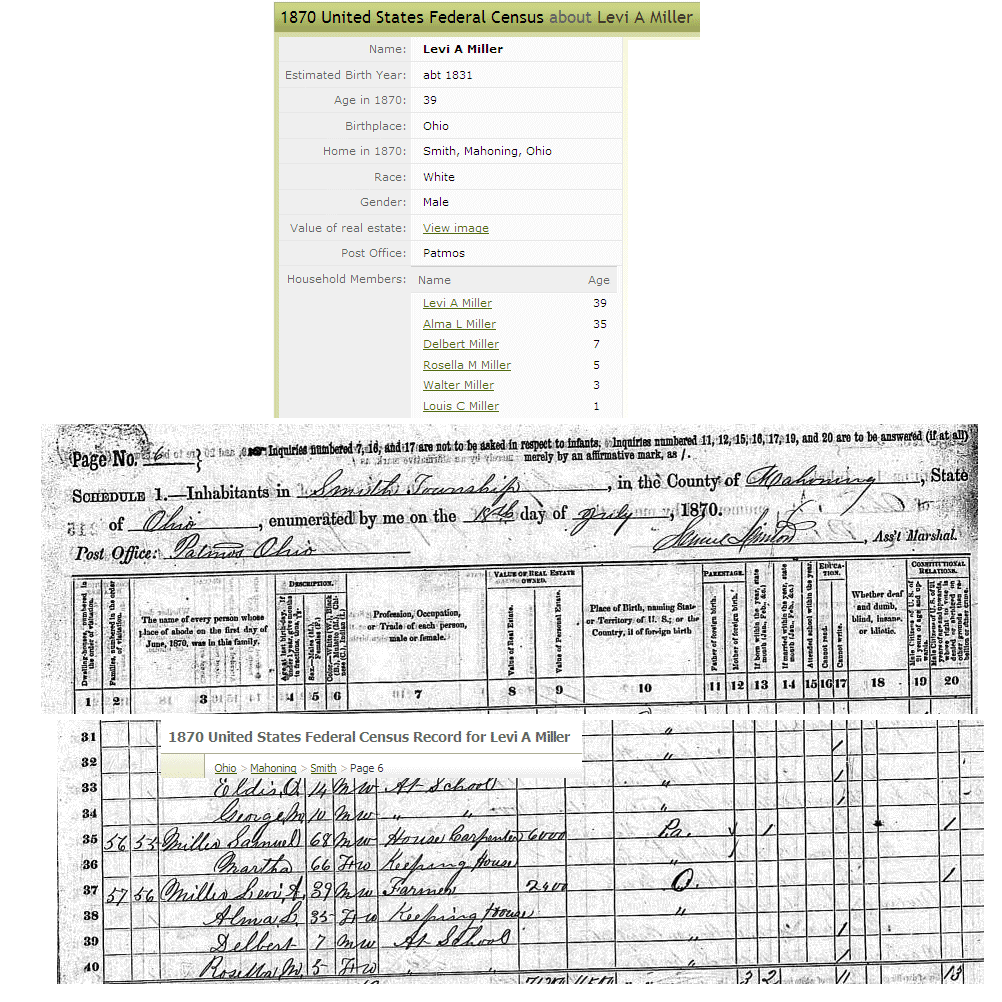 1870 United States Federal Census about Levi A Miller
Name: Levi A Miller
Estimated Birth Year: abt 1831
Age in 1870: 39
Birthplace: Ohio
Home in 1870: Smith, Mahoning, Ohio
Race: White
Gender: Male
Value of real estate: View image
Post Office: Patmos
Household Members: Name Age
Levi A Miller 39
Alma L Miller 35
Delbert Miller 7
Rosella M Miller 5
Walter Miller 3
Louis C Miller 1
Page No. 6 } Inquiries numbered 7, 16, and 17 are not to be asked in respect to infants. Inquiries numbered 11, 12, 15, 16, 17, 19, and 20 are to be answered (if at all)
merely by an affirmative mark, as /.
SCHEDULE 1.—Inhabitants in Smith Township, in the County of Mahoning, State
of Ohio, enumerated by me on the day of, 1870.
Post Office: Patmos Ohio Samuel, Ass't Marshal.
DESCRIPTION. VALUE OF REAL ESTATE OWNED. PARENTAGE. EDUCATION. CONSTITUTIONAL RELATIONS.
Dwelling-houses, numbered in the order of visitation.
Families, numbered in the order of visitation.
The name of every person whose place of abode on the first day of June, 1870, was in this family.
Profession, Occupation, or Trade of each person, male or female.
Value of Real Estate.
Value of Personal Estate.
Place of Birth, naming State or Territory of U. S.; or the Country, if of foreign birth
Father of foreign birth.
Mother of foreign birth.
Attended school within the year.
Cannot read.
Cannot write.
Whether deaf and dumb, blind, insane, or idiotic.
1 2 3 4 5 6 7 8 9 10 11 12 13 14 15 16 17 18 19 20
31 "
1870 United States Federal Census Record for Levi A Miller
32 " /
Ohio > Mahoning > Smith > Page 6
33 14 M W At School " /
34 George M 10 M W " " " /
35 56 55 Miller Samuel 68 M W House Carpenter 6000 Pa. / /
36 Martha 66 F W Keeping House "
37 57 56 Miller Levi A. 39 M W Farmer 2400 O. /
38 Alma L. 35 F W Keeping House "
39 Delbert 7 M W At School " /
40 Rosella M. 5 F W " " " /
3 2 11 13